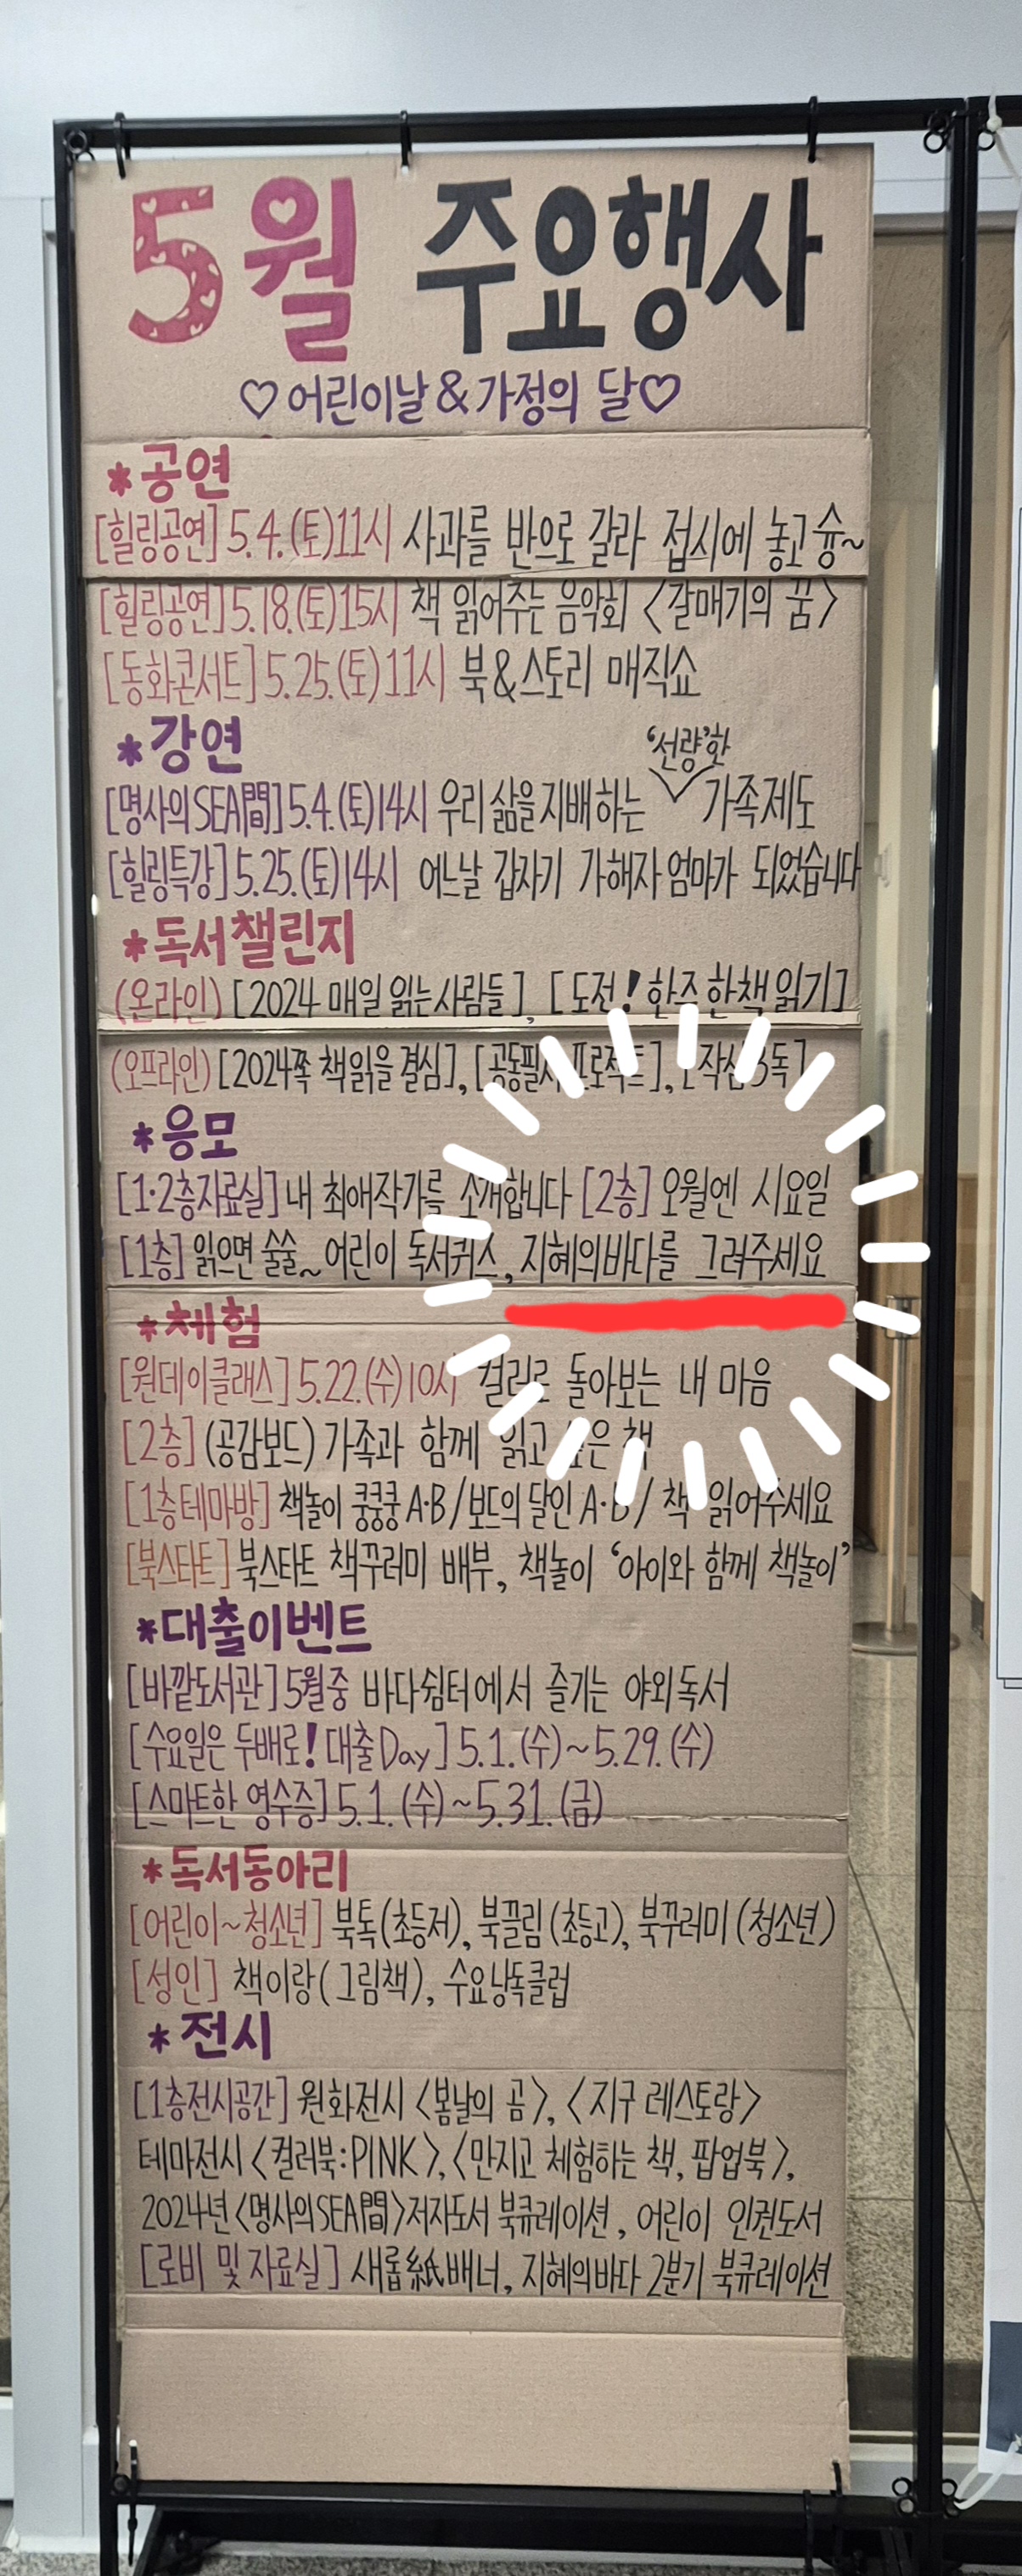 5월 주요행사
♡어린이날&가정의 달♡
*공연
[힐링공연] 5.4.(토)11시 사과를 반으로 갈라 접시에 놓고 슝~
[힐링공연] 5.18.(토)15시 책 읽어주는 음악회 <갈매기의 꿈>
[동화콘서트] 5.25.(토)11시 북&스토리 매직쇼
*강연
[명사의SEA間] 5.4.(토)14시 우리 삶을 지배하는 '선량'한 가족제도
[힐링특강] 5.25.(토)14시 어느날 갑자기 가해자 엄마가 되었습니다
*독서챌린지
(온라인) [2024 매일 읽는사람들], [도전! 한주 한책 읽기]
(오프라인) [2024쪽 책읽을 결심], [공동필사 프로젝트], [작심3독]
*응모
[1·2층자료실] 내 최애작가를 소개합니다 [2층] 오월엔 시요일
[1층] 읽으면 술술~ 어린이 독서퀴즈, 지혜의바다를 그려주세요
*체험
[원데이클래스] 5.22.(수)10시 컬러로 돌아보는 내 마음
[2층] (공감보드) 가족과 함께 읽고 싶은 책
[1층테마방] 책놀이 쿵쿵쿵 A·B/보드의 달인 A·B/ 책 읽어주세요
[북스타트] 북스타트 책꾸러미 배부, 책놀이 '아이와 함께 책놀이'
*대출이벤트
[바깥도서관] 5월중 바다쉼터에서 즐기는 야외독서
[수요일은 두배로! 대출Day] 5.1.(수)~5.29.(수)
[스마트한 영수증] 5.1.(수)~5.31.(금)
*독서동아리
[어린이~청소년] 북톡(초등저), 북끌림(초등고), 북꾸러미(청소년)
[성인] 책이랑(그림책), 수요낭독클럽
*전시
[1층전시공간] 원화전시 <봄날의 곰>, <지구 레스토랑>
테마전시 <컬러북:PINK>, <만지고 체험하는 책, 팝업북>,
2024년 <명사의SEA間>저자도서 북큐레이션, 어린이 인권도서
[로비 및 자료실] 새롭紙배너, 지혜의바다 2분기 북큐레이션